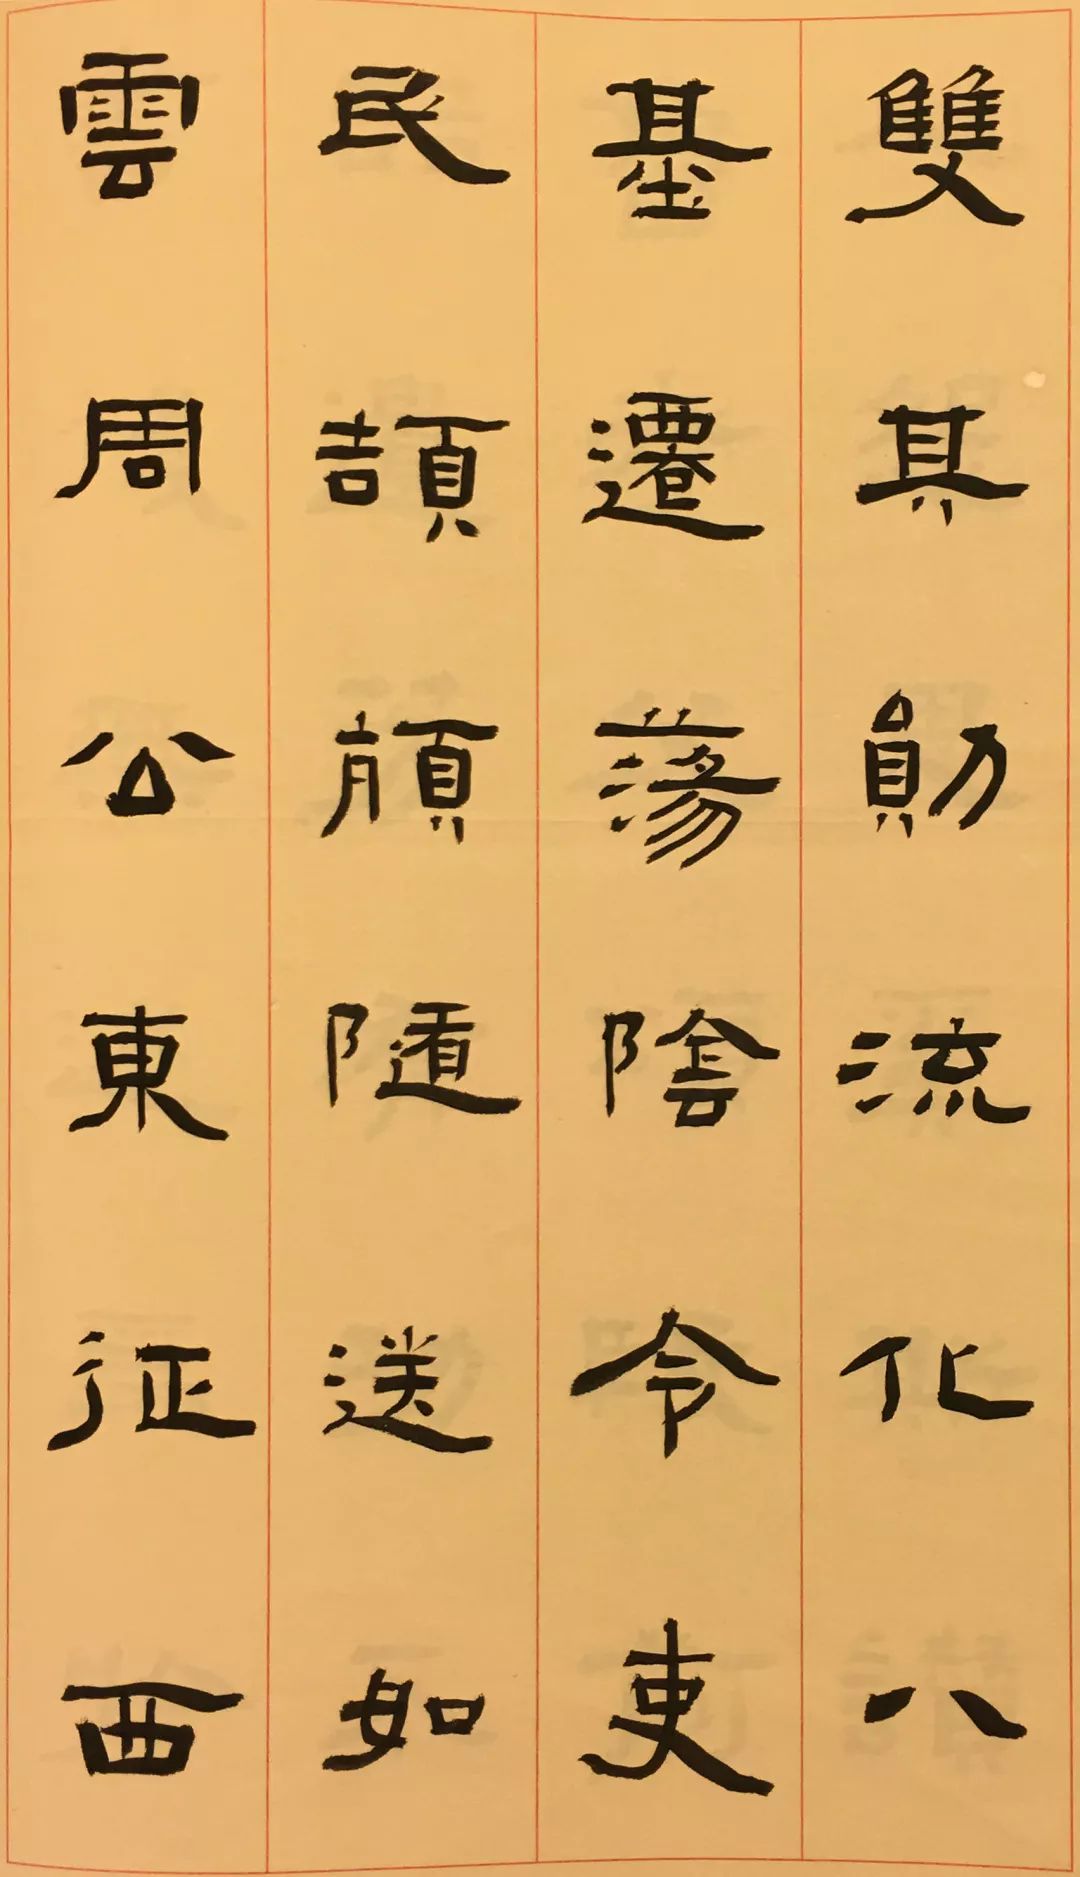 雙其勛流化八
基遷蕩陰令吏
民頡頏隨送如
雲周公東征西